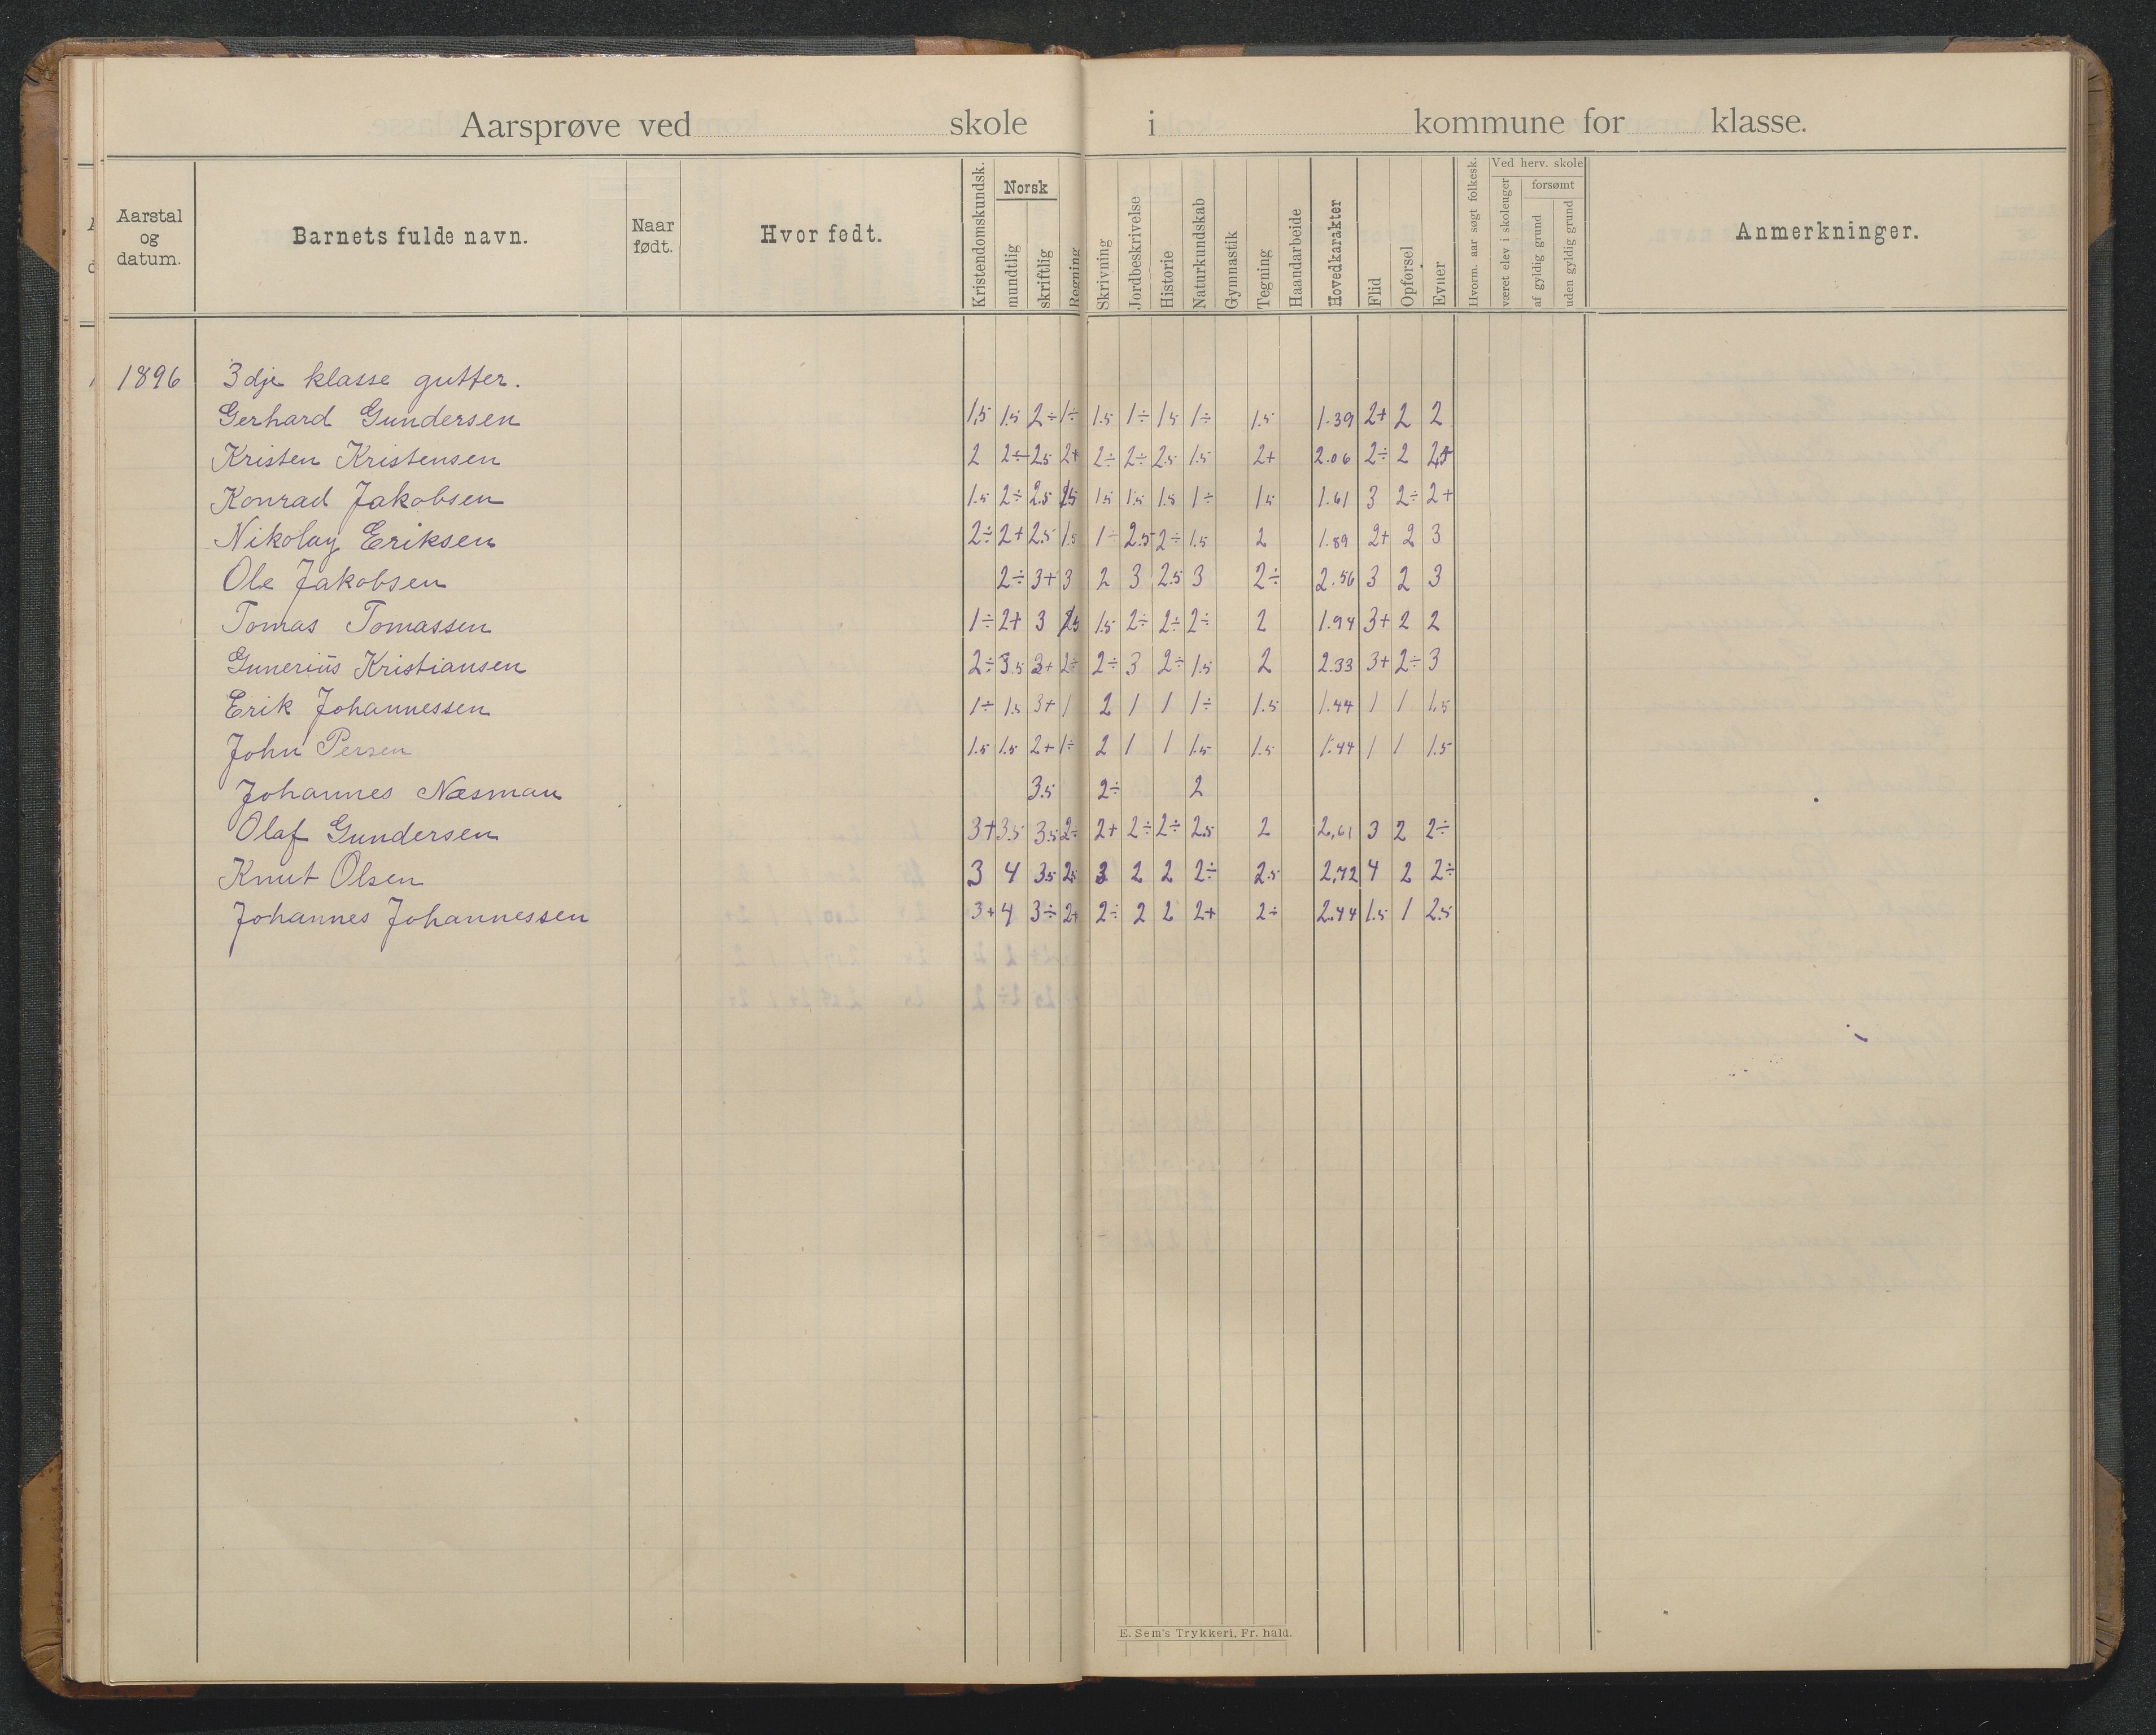 Aarsprøve ved skole i kommune for klasse.
Aarstal og datum. Barnets fulde navn. Naar født. Hvor født. Kristendomskundsk. Norsk mundtlig skriftlig Regning Skrivning Jordbeskrivelse Historie Naturkundskab Gymnastik Tegning Haandarbeide Hovedkarakter Flid Opførsel Evner Hvorm. aar søgt folkesk. Ved herv. skole været elev i skoleuger forsømt af gyldig grund uden gyldig grund Anmerkninger.
1896 3dje klasse gutter.
Gerhard Gundersen 1,5 1.5 2÷ 1÷ 1.5 1÷ 1.5 1÷ 1.5 1.39 2+ 2 2
Kristen Kristensen 2 2÷ 2.5 2+ 2÷ 2÷ 2.5 1.5 2+ 2.06 2÷ 2
Konrad Jakobsen 1.5 2÷ 2.5 1.5 1.5 1.5 1÷ 1.5 1.61 3 2÷ 2+
Nikolay Eriksen 2÷ 2+ 2.5 1.5 1÷ 2.5 2÷ 1.5 2 1.89 2+ 2 3
Ole Jakobsen 2÷ 3+ 3 2 3 2.5 3 2÷ 2.56 3 2 3
Tomas Tomassen 1÷ 2+ 3 1.5 2÷ 2÷ 2÷ 2 1.94 3+ 2 2
Gunerius Kristiansen 2÷ 3.5 3+ 2÷ 2÷ 3 2÷ 1.5 2 2.33 3+ 2÷ 3
Erik Johannessen 1÷ 1.5 3+ 1 2 1 1 1÷ 1.5 1.44 1 1 1.5
John Persen 1.5 1.5 2+ 1÷ 2 1 1 1.5 1.5 1.44 1 1 1.5
Johannes Næsman 3.5 2÷ 2
Olaf Gundersen 3+ 3.5 3.5 2÷ 2+ 2÷ 2÷ 2.5 2 2,61 3 2 2÷
Knut Olsen 3 4 3.5 2.5 3 2 2 2÷ 2.5 2,72 4 2 2÷
Johannes Johannessen 3+ 4 3÷ 2+ 2÷ 2 2 2+ 2÷ 2.44 1.5 1 2.5
E. Sem's Trykkeri, Fr. hald.